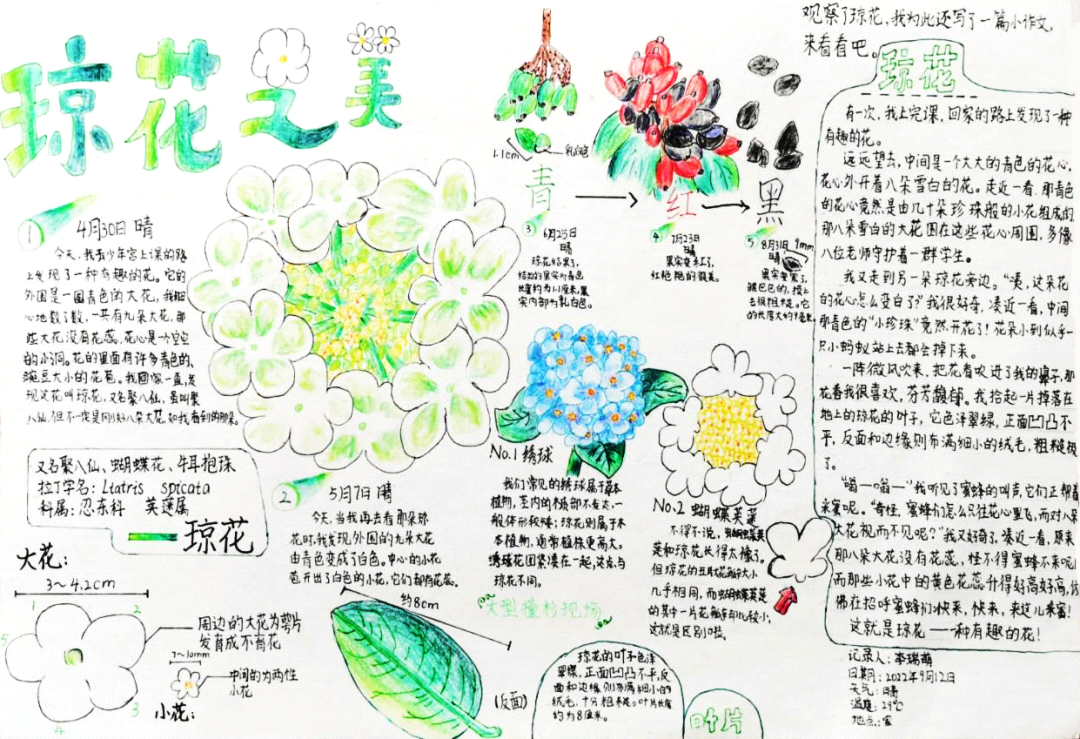 琼花之美
① 4月30日 晴
今天,我去少年宫上课的路
上发现了一种有趣的花。它的
外围是一圈青色的大花,我细
心地数了数,一共有九朵大花,那
些大花没有花蕊,花心是一个空空
的小洞。花的里面有许多青色的,
豌豆大小的花苞。
现这花叫琼花,又名聚八仙,虽叫聚
八仙,但不一定是刚好八朵大花,如我看到的
又名聚八仙、蝴蝶花、牛耳抱珠
拉丁学名:Liatris spicata
科属:忍冬科 荚蒾属
琼花
大花:
3~4.2cm
1
2
3
4
5
周边的大花为萼片
发育成不育花
7~10mm
中间的为两性
小花
小花:
② 5月7日 晴
今天,当我再去看那朵琼
花时,我发现外围的九朵大花
由青色变成了白色。中心的小花
苞开出了白色的小花,它们都有花蕊。
约8cm
(反面)
1.1cm
乳白色
青
红
黑
③ 6月25日
晴
琼花结果了,
结出的果实为青色
长度约为1.1厘米,果
实内部为乳白色。
④ 7月23日
晴
果实变红了,
红艳艳的很美。
⑤ 8月31日
晴
9mm
果实变黑了,
黑巴巴的,摸上
去很粗糙。它
的长度大约9毫米
No.1 绣球
我们常见的绣球属于草本
植物,茎内的木质部不发达,一
般体形较矮;琼花则属于木
本植物,通常植株更高大。
绣球花团紧凑在一起,这点与
琼花不同。
大型撞衫现场
No.2 蝴蝶荚蒾
不得不说,蝴蝶荚
蒾和琼花长得太像了。
但琼花的五片花瓣大小
几乎相同,而蝴蝶荚蒾
的其中一片花瓣却比较小,
这就是区别啦。
琼花的叶子色泽
翠绿,正面凹凸不平,反
面和边缘则布满细小的
绒毛,十分粗糙。叶片长度
约为8厘米。
叶片
观察了琼花,我为此还写了一篇小作文,
来看看吧。
琼花
有一次,我上完课,回家的路上发现了一种
有趣的花。
远远望去,中间是一个大大的青色的花心,
花心外开着八朵雪白的花。走近一看,那青色
的花心竟然是由几十朵珍珠般的小花组成的
那八朵雪白的大花围在这些花心周围,多像
八位老师守护着一群学生。
我又走到另一朵琼花旁边。“咦,这朵花
的花心怎么变白了?”我很好奇,凑近一看,中间
那青色的“小珍珠”竟然开花了!花朵小到似乎一
只小蚂蚁站上去都会掉下来。
一阵微风吹来,把花香吹进了我的鼻子,那
花香我很喜欢,芬芳馥郁。我拾起一片掉落在
地上的琼花的叶子,它色泽翠绿,正面凹凸不
平,反面和边缘则布满细小的绒毛,粗糙极
了。
“嗡—嗡—”我听见了蜜蜂的叫声,它们正帮着
采蜜呢。“奇怪,蜜蜂们怎么只往花心里飞,而对八朵
大花视而不见呢?”我又好奇了,凑近一看,原来
那八朵大花没有花蕊,怪不得蜜蜂不来呢
而那些小花中的黄色花蕊升得好高好高,仿
佛在招呼蜜蜂们:快来,快来,来这儿采蜜!
这就是琼花——一种有趣的花!
记录人:李瑞萌
日期:2022年9月12日
天气:晴
温度:29℃
地点:家